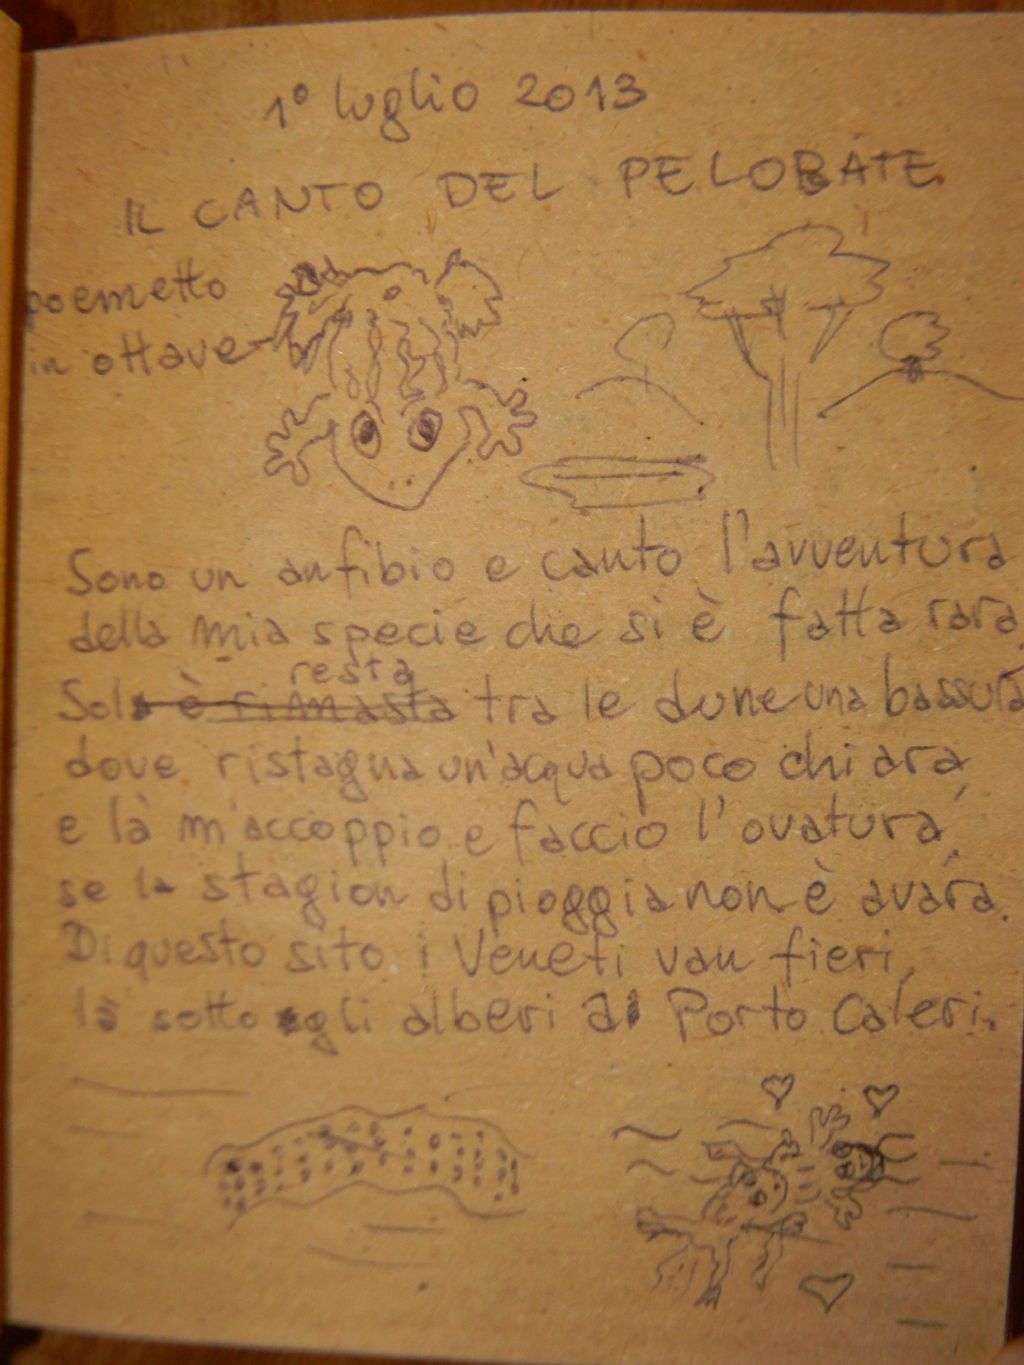 1° luglio 2013
IL CANTO DEL PELOBATE
poemetto
in ottave
Sono un anfibio e canto l'avventura
della mia specie che si è fatta rara.
resta
Sola è rimasta tra le dune una bassura
dove ristagna un'acqua poco chiara,
e là m'accoppio e faccio l'ovatura,
se la stagion di pioggia non è avara.
Di questo sito i Veneti van fieri,
là sotto gli alberi di Porto Caleri.